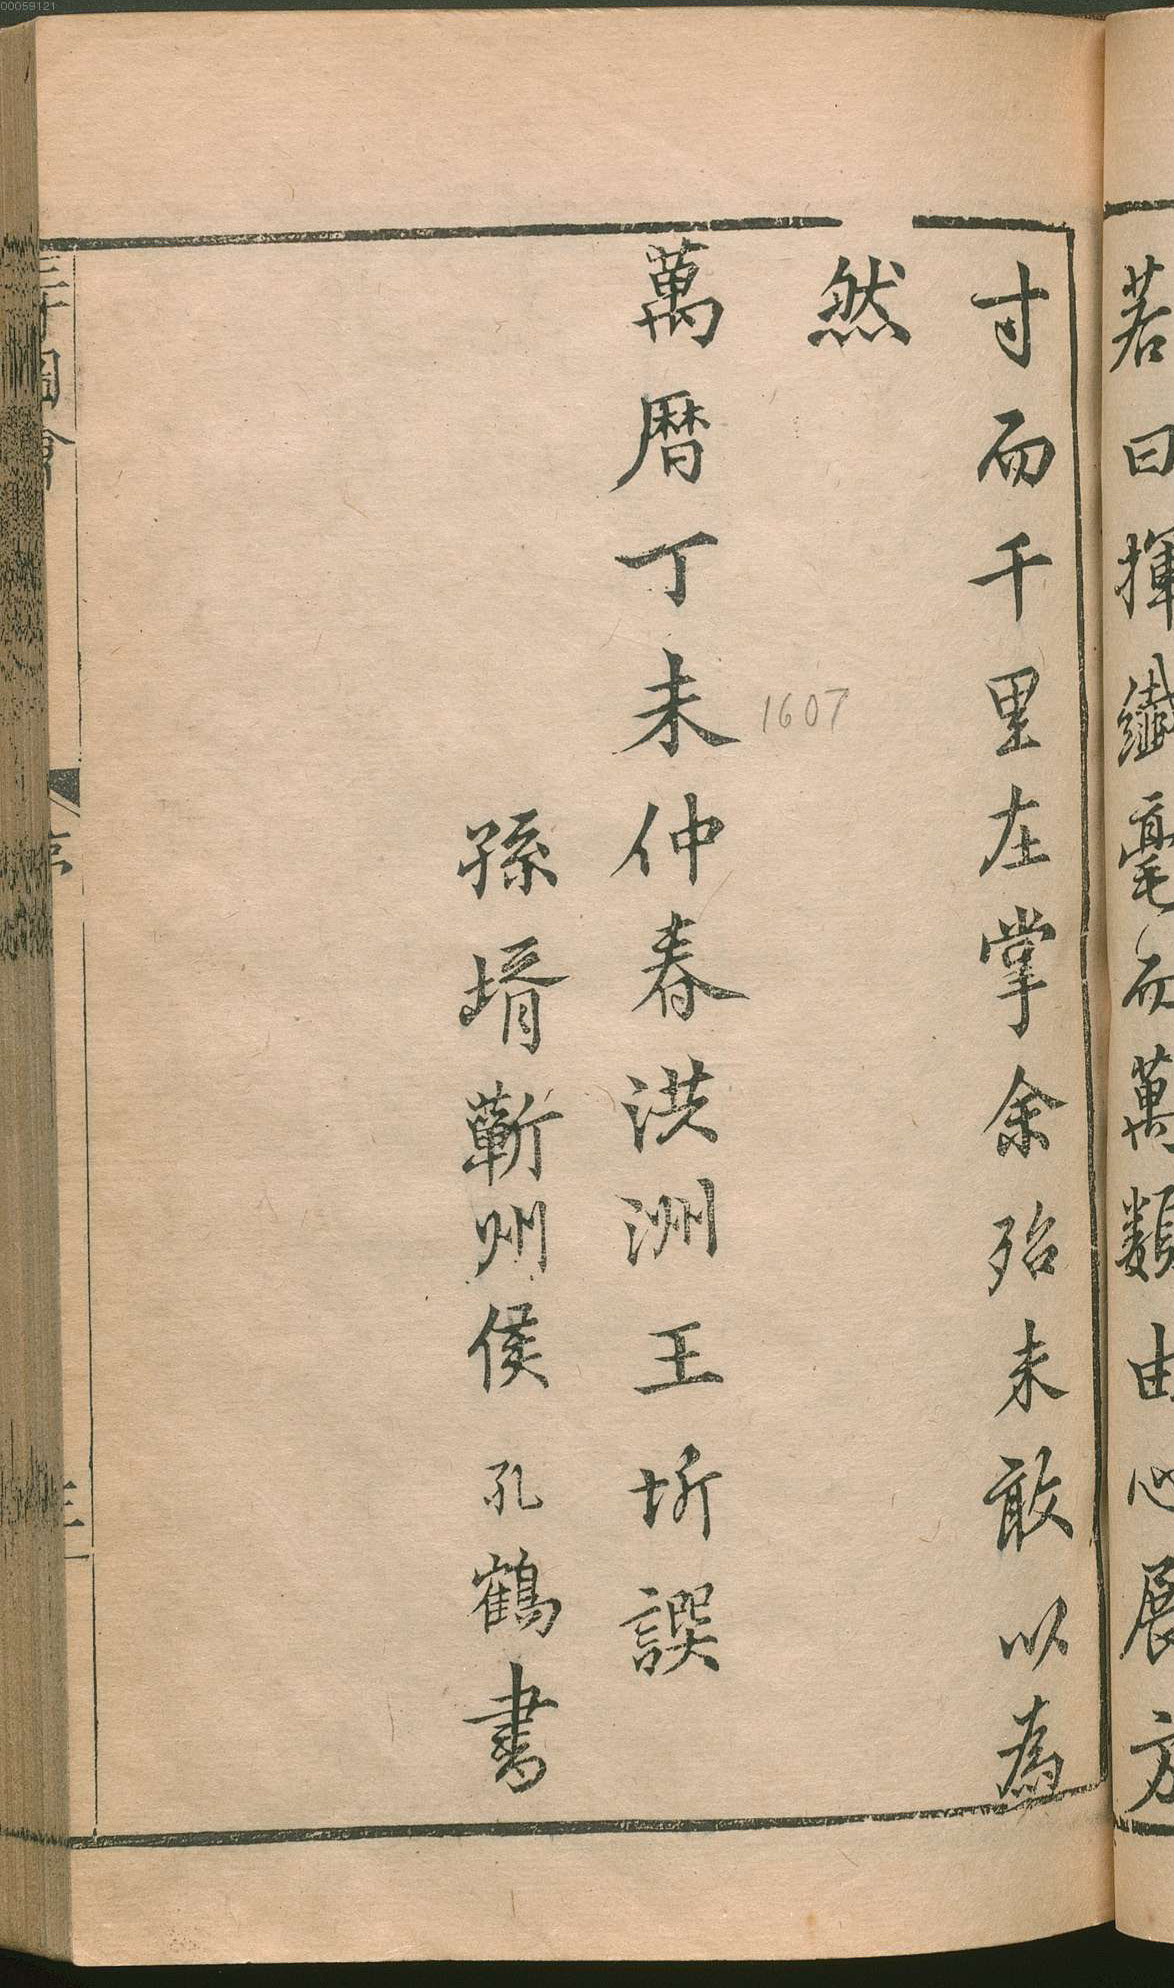 若曰揮纖毫而萬類由心展方
寸而千里在掌余殆未敢以為
然
萬曆丁未仲春洪洲王圻譔
1607
孫壻蘄州侯孔鶴書
三才圖會
序
三
00059121